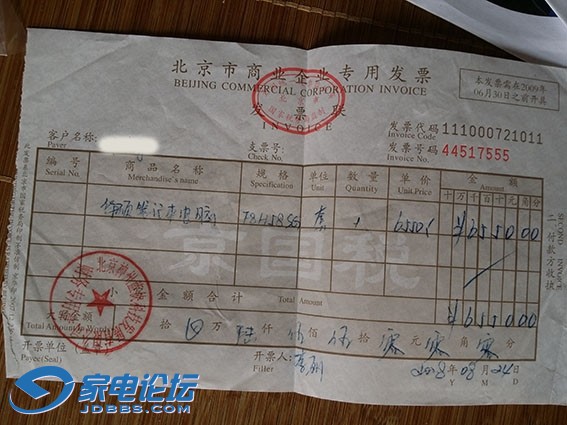 北京市商业企业专用发票
BEIJING COMMERCIAL CORPORATION INVOICE
本发票需在2009年
06月30日之前开具
发票联
INVOICE
发票代码 111000721011
Invoice Code
发票号码 44517555
Invoice No.
客户名称:
Payer
支票号:
Check No.
编号 商品名称 规格 单位 数量 单价 金额
Serial No. Merchandise's name Specification Unit Quantity Unit Price Amount
十万千百十元角分
笔记本电脑 套 1 6550 ¥655000
京国税
小写金额合计 Total ¥655000
大写金额
Total Amount in Words 拾 万 陆仟 伍佰 伍拾 零元 零角 零分
开票单位
Payee(Seal)
开票人:
Filler
2008年08月24日
Y M D
二 付款方收执
SECOND INVOICE
家电论坛
JDBBS.COM